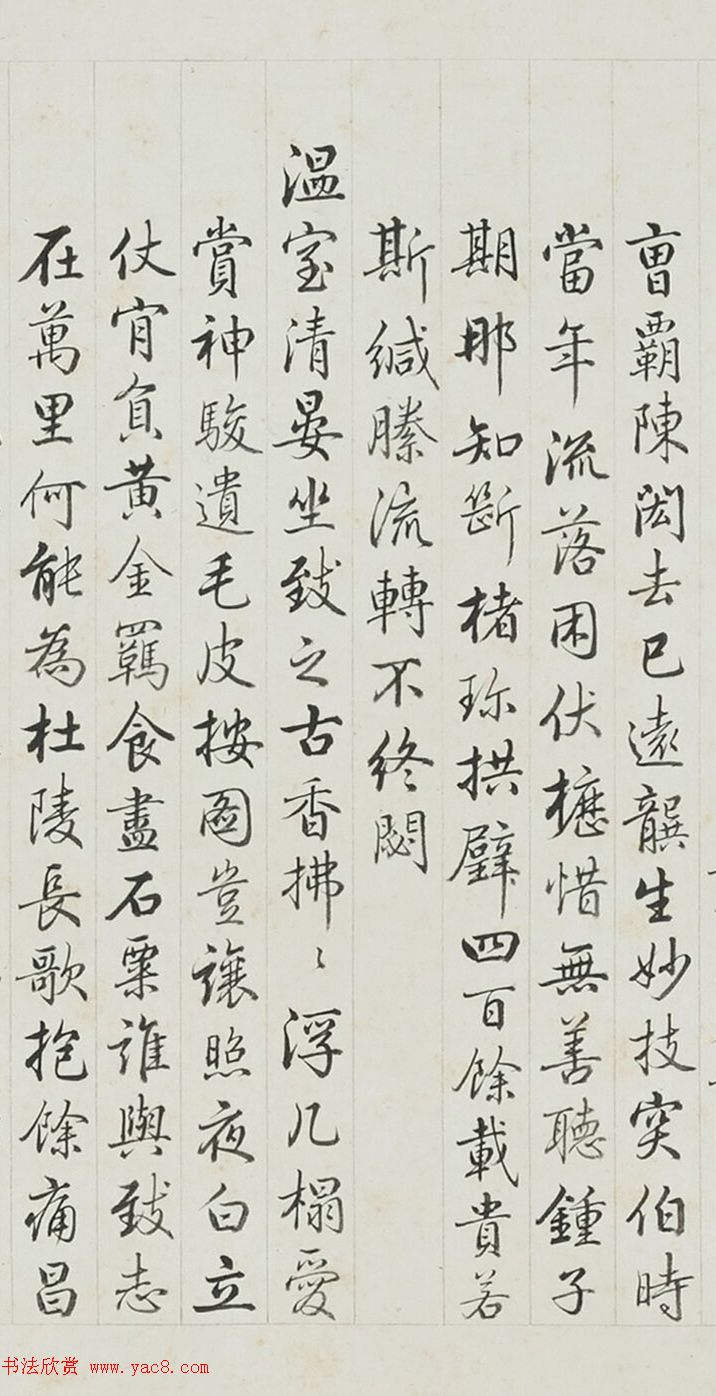 曹霸陳閎去已遠龔生妙技突伯時
當年流落困伏櫪惜無善聽鍾子
期那知斷楮珎拱璧四百餘載貴若
斯緘縢流轉不終閟
溫室清晏坐致之古香拂〻浮几榻愛
賞神駿遺毛皮按圖豈讓照夜白立
仗宵負黃金羈食盡石粟誰與致志
在萬里何能為杜陵長歌抱餘痛昌
书法欣赏 www.yac8.com